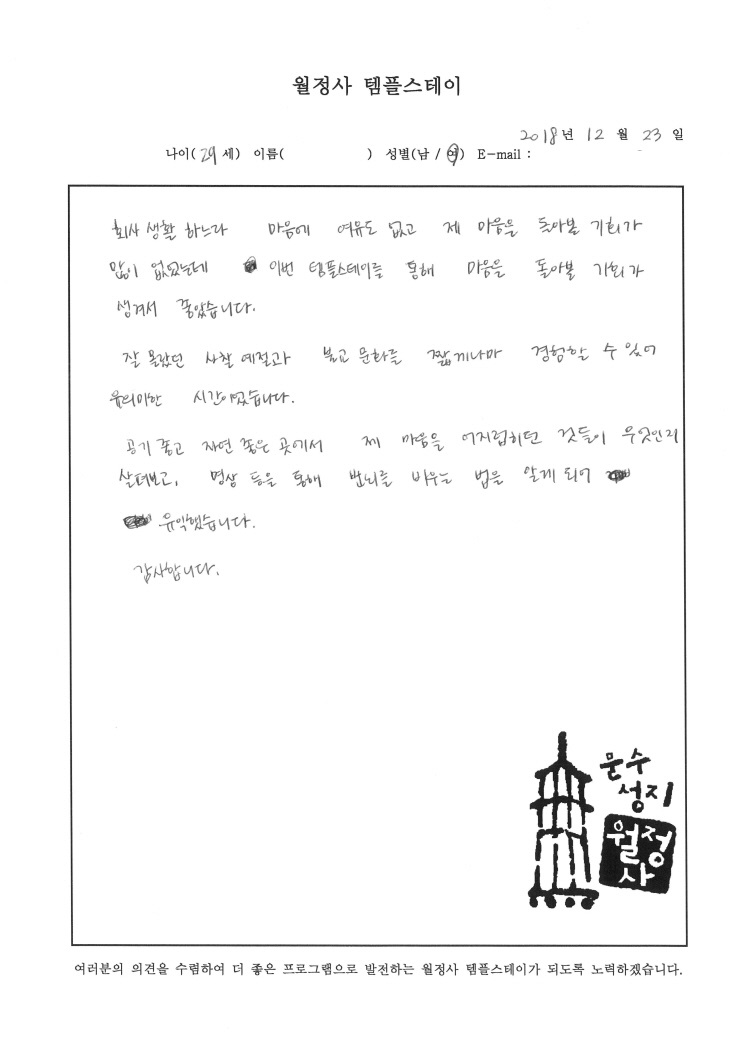 월정사 템플스테이
2018년 12 월 23 일
나이( 29 세) 이름( ) 성별(남 / 여) E-mail :
회사 생활 하느라 마음에 여유도 없고 제 마음을 돌아볼 기회가
많이 없었는데 이번 템플스테이를 통해 마음을 돌아볼 기회가
생겨서 좋았습니다.
잘 몰랐던 사찰 예절과 불교 문화를 짧게나마 경험할 수 있어
유의미한 시간이었습니다.
공기 좋고 자연 좋은 곳에서 제 마음을 어지럽히던 것들이 무엇인지
살펴보고, 명상 등을 통해 번뇌를 비우는 법을 알게 되어
유익했습니다.
감사합니다.
문수
성지
월정
사
여러분의 의견을 수렴하여 더 좋은 프로그램으로 발전하는 월정사 템플스테이가 되도록 노력하겠습니다.